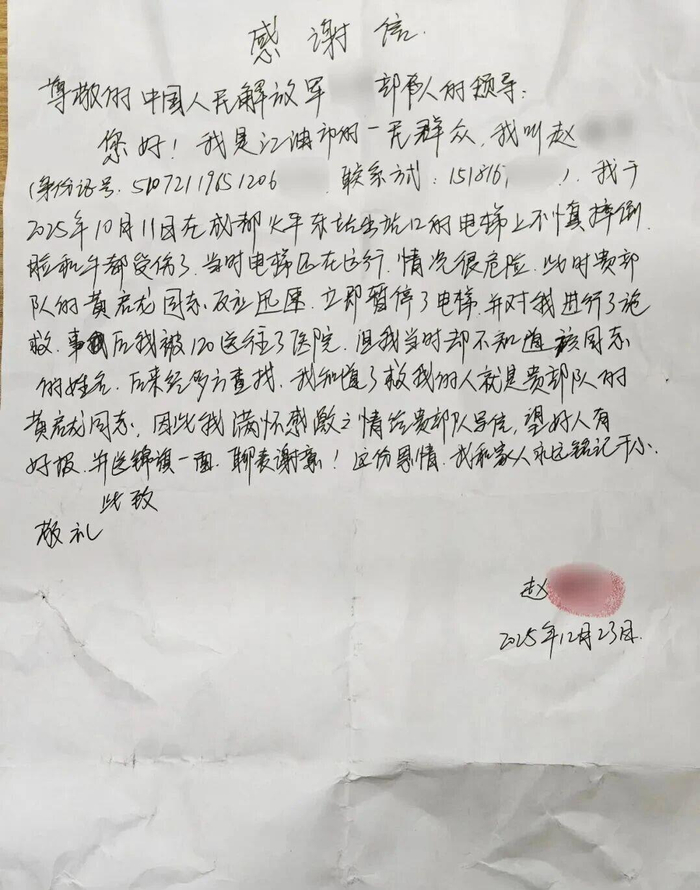 感谢信.
尊敬的中国人民解放军 部队的领导:
您好!我是江油市的一民群众,我叫赵
(身份证号.51072119651206 联系方式:151816, ).我于
2025年10月11日在成都火车东站出站口的电梯上不慎摔倒.
脸和手都受伤了.当时电梯还在运行.情况很危险.此时贵部
队的黄启龙同志反应迅速.立即暂停了电梯.并对我进行了施
救.事后我被120送往了医院.但我当时却不知道该同志
的姓名.后来经多方查找.我知道了救我的人就是贵部队的
黄启龙同志.因此我满怀感激之情给贵部队写信,望好人有
好报.并送锦旗一面.聊表谢意!这份恩情.我和家人永远铭记于心.
此致
敬礼
赵
2025年12月23日.